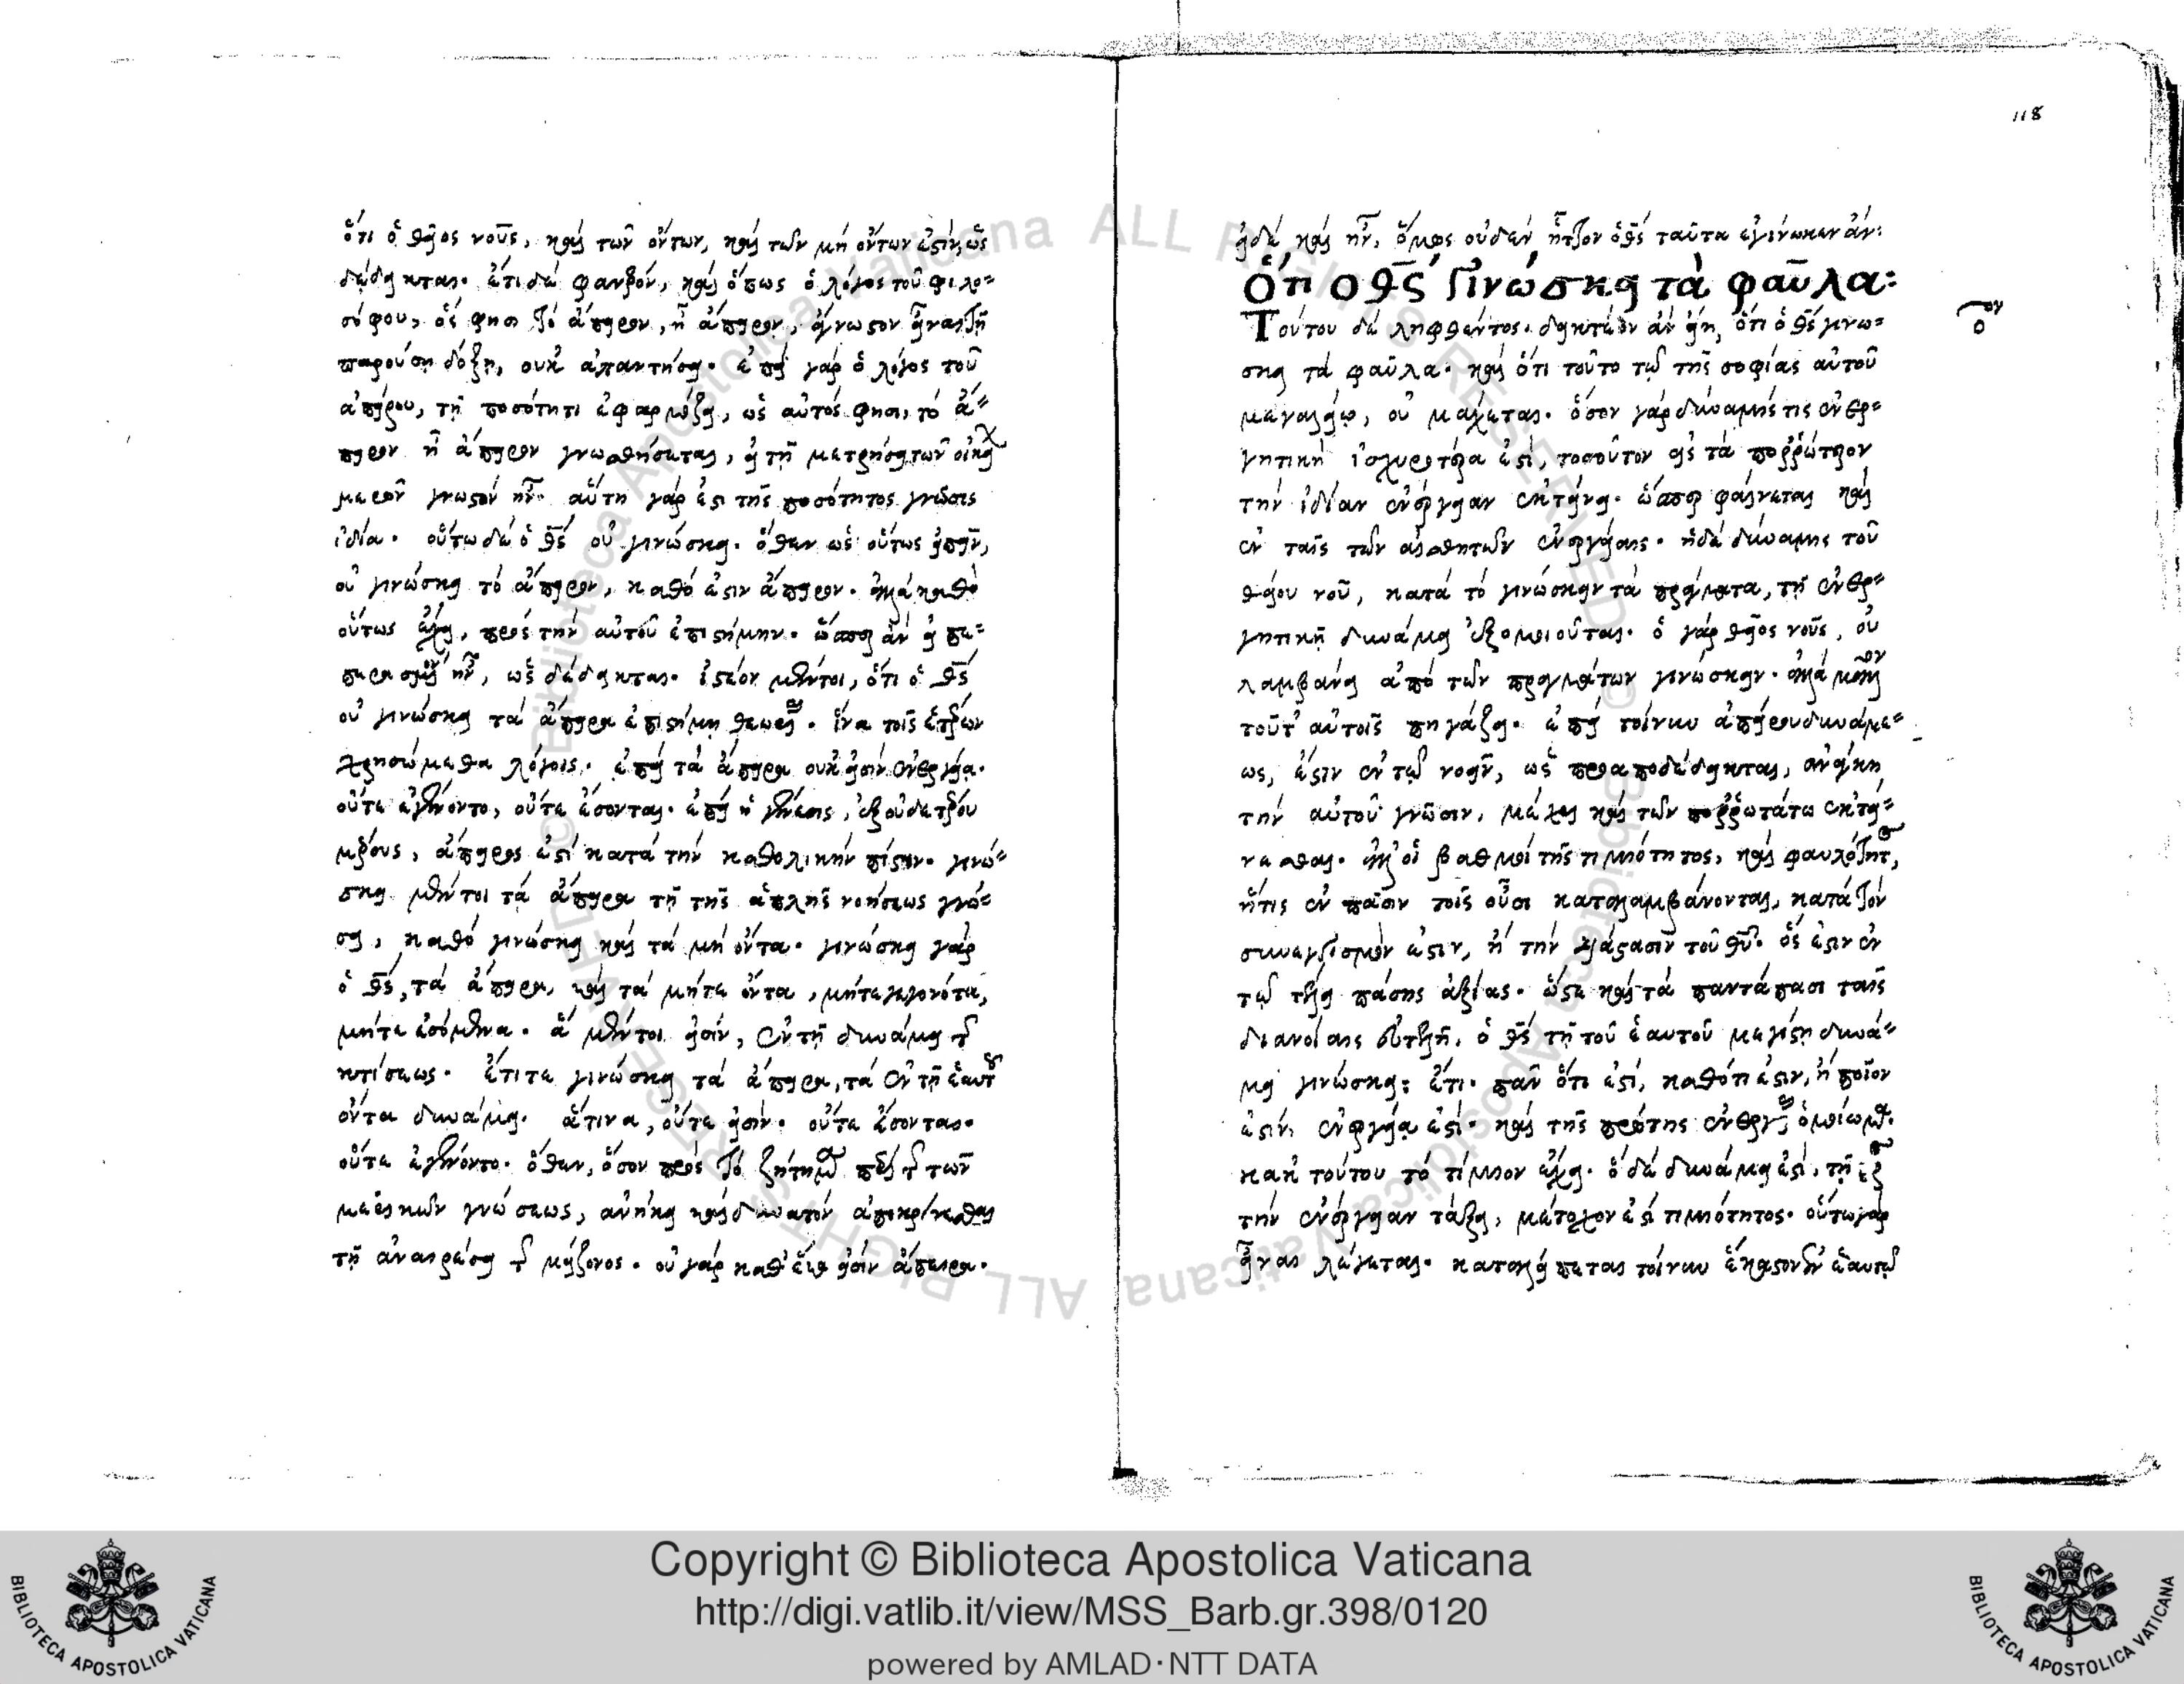 ὅτι ὁ θεῖος νοῦς, καὶ τῶν ὄντων, καὶ τῶν μὴ ὄντων ἐστίν, ὡς
δέδεικται. ἔτι δὲ φανερόν, καὶ ὅπως ὁ λόγος τοῦ φιλο=
σόφου, ὅς φησι τὸ ἄπειρον, ᾗ ἄπειρον, ἄγνωστον εἶναι τῇ
παρούσῃ δόξῃ, οὐκ ἀπαντήσει. ἐπεὶ γὰρ ὁ λόγος τοῦ
ἀπείρου, τῇ ποσότητι ἐφαρμόζει, ὡς αὐτός φησι, τὸ ἄ=
πειρον ᾗ ἄπειρον γνωσθήσεται, εἰ τῇ μετρήσει τῶν οἰκεί
μερῶν γνωστὸν ἦν. αὕτη γάρ ἐστι τῆς ποσότητος γνῶσις
ἰδία. οὕτω δὲ ὁ θς οὐ γινώσκει. ὅθεν ὡς οὕτως εἰπεῖν,
οὐ γινώσκει τὸ ἄπειρον, καθό ἐστιν ἄπειρον. ἀλλὰ καθὸ
οὕτως ἔχει, πρὸς τὴν αὐτοῦ ἐπιστήμην. ὥσπερ ἂν εἰ πε=
περασμένον ἦν, ὡς δέδεικται. ἰστέον μέντοι, ὅτι ὁ θς
οὐ γινώσκει τὰ ἄπειρα ἐπιστήμῃ θεωρίας. ἵνα τοῖς ἑτέρων
χρησώμεθα λόγοις. ἐπεὶ τὰ ἄπειρα οὐκ εἰσὶν ἐνεργείᾳ.
οὔτε ἐγένοντο, οὔτε ἔσονται. ἐπεὶ ἡ γένεσις, ἐξ οὐδετέρου
μέρους, ἄπειρός ἐστι κατὰ τὴν καθολικὴν πίστιν. γινώ=
σκει μέντοι τὰ ἄπειρα τῇ τῆς ἁπλῆς νοήσεως γνώ=
σει, καθὸ γινώσκει καὶ τὰ μὴ ὄντα. γινώσκει γὰρ
ὁ θς, τὰ ἄπειρα, καὶ τὰ μήτε ὄντα, μήτε γεγονότα,
μήτε ἐσόμενα. ἃ μέντοι εἰσίν, ἐν τῇ δυνάμει τῆς
κτίσεως. ἔτι τε γινώσκει τὰ ἄπειρα, τὰ ἐν τῇ ἑαυτοῦ
ὄντα δυνάμει. ἅτινα, οὔτε εἰσίν. οὔτε ἔσονται.
οὔτε ἐγένοντο. ὅθεν, ὅσον πρὸς τὸ ζήτημα περὶ τῆς τῶν
μερικῶν γνώσεως, ἀνήκει καὶ δυνατὸν ἀποκρίνεσθαι
τῇ ἀναιρέσει τῆς μείζονος. οὐ γὰρ καθ' ἕκαστα εἰσὶν ἄπειρα.
118
εἰ δὲ καὶ ἦν, ὅμως οὐδὲν ἧττον ὁ θς ταῦτα ἐγίνωσκεν ἄν:
Ὅτι ὁ θς γινώσκει τὰ φαῦλα:
Τούτου δὲ ληφθέντος. δεικτέον ἂν εἴη, ὅτι ὁ θς γινώ=
σκει τὰ φαῦλα. καὶ ὅτι τοῦτο τῷ τῆς σοφίας αὐτοῦ
μεγαλείῳ, οὐ μάχεται. ὅσον γὰρ δύναμίς τις ἐνερ=
γητικὴ ἰσχυροτέρα ἐστί, τοσοῦτον εἰς τὰ πορρώτερον
τὴν ἰδίαν ἐνέργειαν ἐκτείνει. ὥσπερ φαίνεται καὶ
ἐν ταῖς τῶν αἰσθητῶν ἐνεργείαις. ἡ δὲ δύναμις τοῦ
θείου νοῦ, κατὰ τὸ γινώσκειν τὰ πράγματα, τῇ ἐνερ=
γητικῇ δυνάμει ἐξομοιοῦται. ὁ γὰρ θεῖος νοῦς, οὐ
λαμβάνει ἀπὸ τῶν πραγμάτων γινώσκειν. ἀλλὰ μᾶλλον
τοῦτ' αὐτοῖς πηγάζει. ἐπεὶ τοίνυν ἀπείρου δυνάμε=
ως, ἐστὶν ἐν τῷ νοεῖν, ὡς προαποδέδεικται, ἀνάγκη
τὴν αὐτοῦ γνῶσιν, μέχρι καὶ τῶν πορρωτάτω ἐκτεί=
νεσθαι. ἀλλ' οἱ βαθμοὶ τῆς τιμιότητος, καὶ φαυλότητος,
ἥτις ἐν πᾶσιν τοῖς οὖσι καταλαμβάνονται, κατὰ τὸν
συνεγγισμόν ἐστιν, ἢ τὴν διάστασιν τοῦ θυ. ὅς ἐστιν ἐν
τῷ τέλει πάσης ἀξίας. ὥστε καὶ τὰ παντάπασι ταῖς
διανοίαις εὐτελῆ, ὁ θς τῇ τοῦ ἑαυτοῦ μεγίστῃ δυνά=
μει γινώσκει: ἔτι. πᾶν ὅτι ἐστί, καθότι ἐστιν, ἢ ποῖον
ἐστίν, ἐνεργείᾳ ἐστί. καὶ τῆς πρώτης ἐνεργείας ὁμοίωμα.
κἀκ τούτου τὸ τίμιον ἔχει. ὃ δὲ δυνάμει ἐστί, τῇ πρὸς
τὴν ἐνέργειαν τάξει, μέτοχόν ἐστι τιμιότητος. οὕτω γὰρ
εἶναι λέγεται. καταλείπεται τοίνυν ἕκαστον ἐν ἑαυτῷ
Copyright © Biblioteca Apostolica Vaticana
http://digi.vatlib.it/view/MSS_Barb.gr.398/0120
powered by AMLAD·NTT DATA
BIBLIOTECA APOSTOLICA VATICANA
BIBLIOTECA APOSTOLICA VATICANA